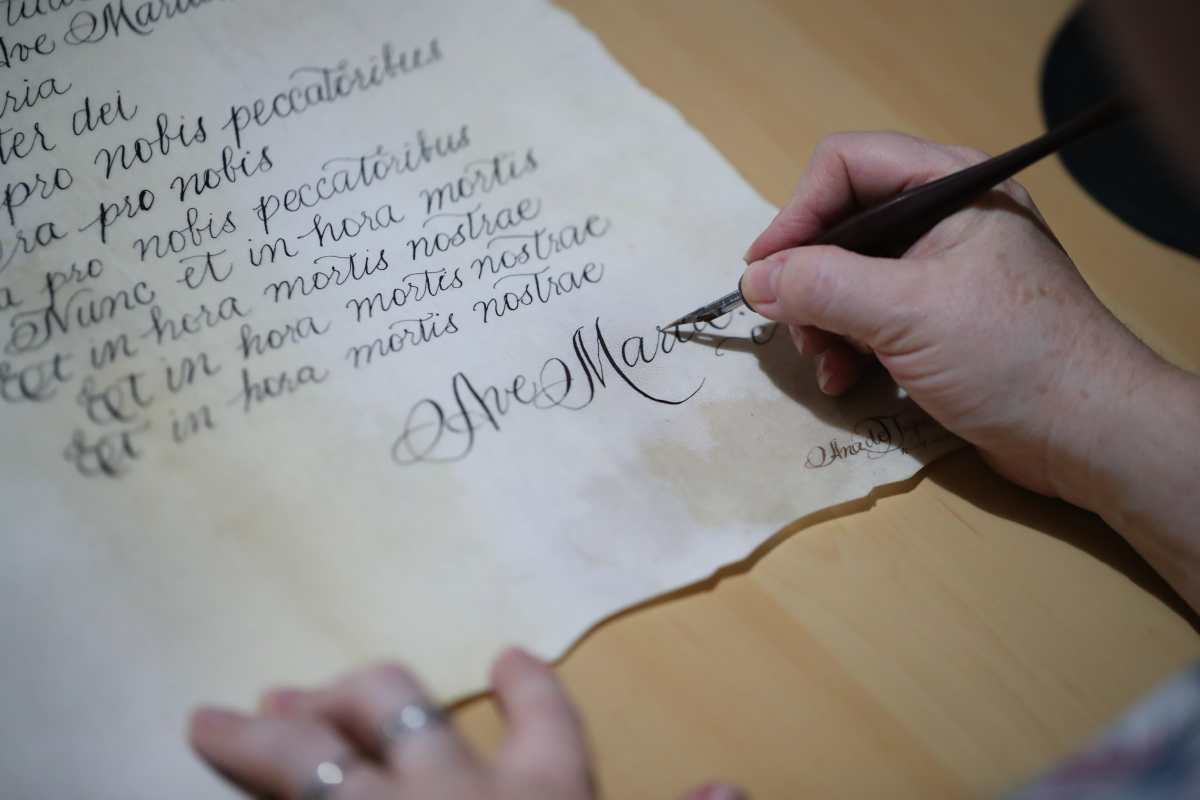 Ave Maria
ria
ter dei
pro nobis peccatóribus
ra pro nobis
pro nobis peccatóribus
Nunc et in hora mortis
Et in hora mortis nostrae
Et in hora mortis nostrae
Et in hora mortis nostrae
Ave Maria